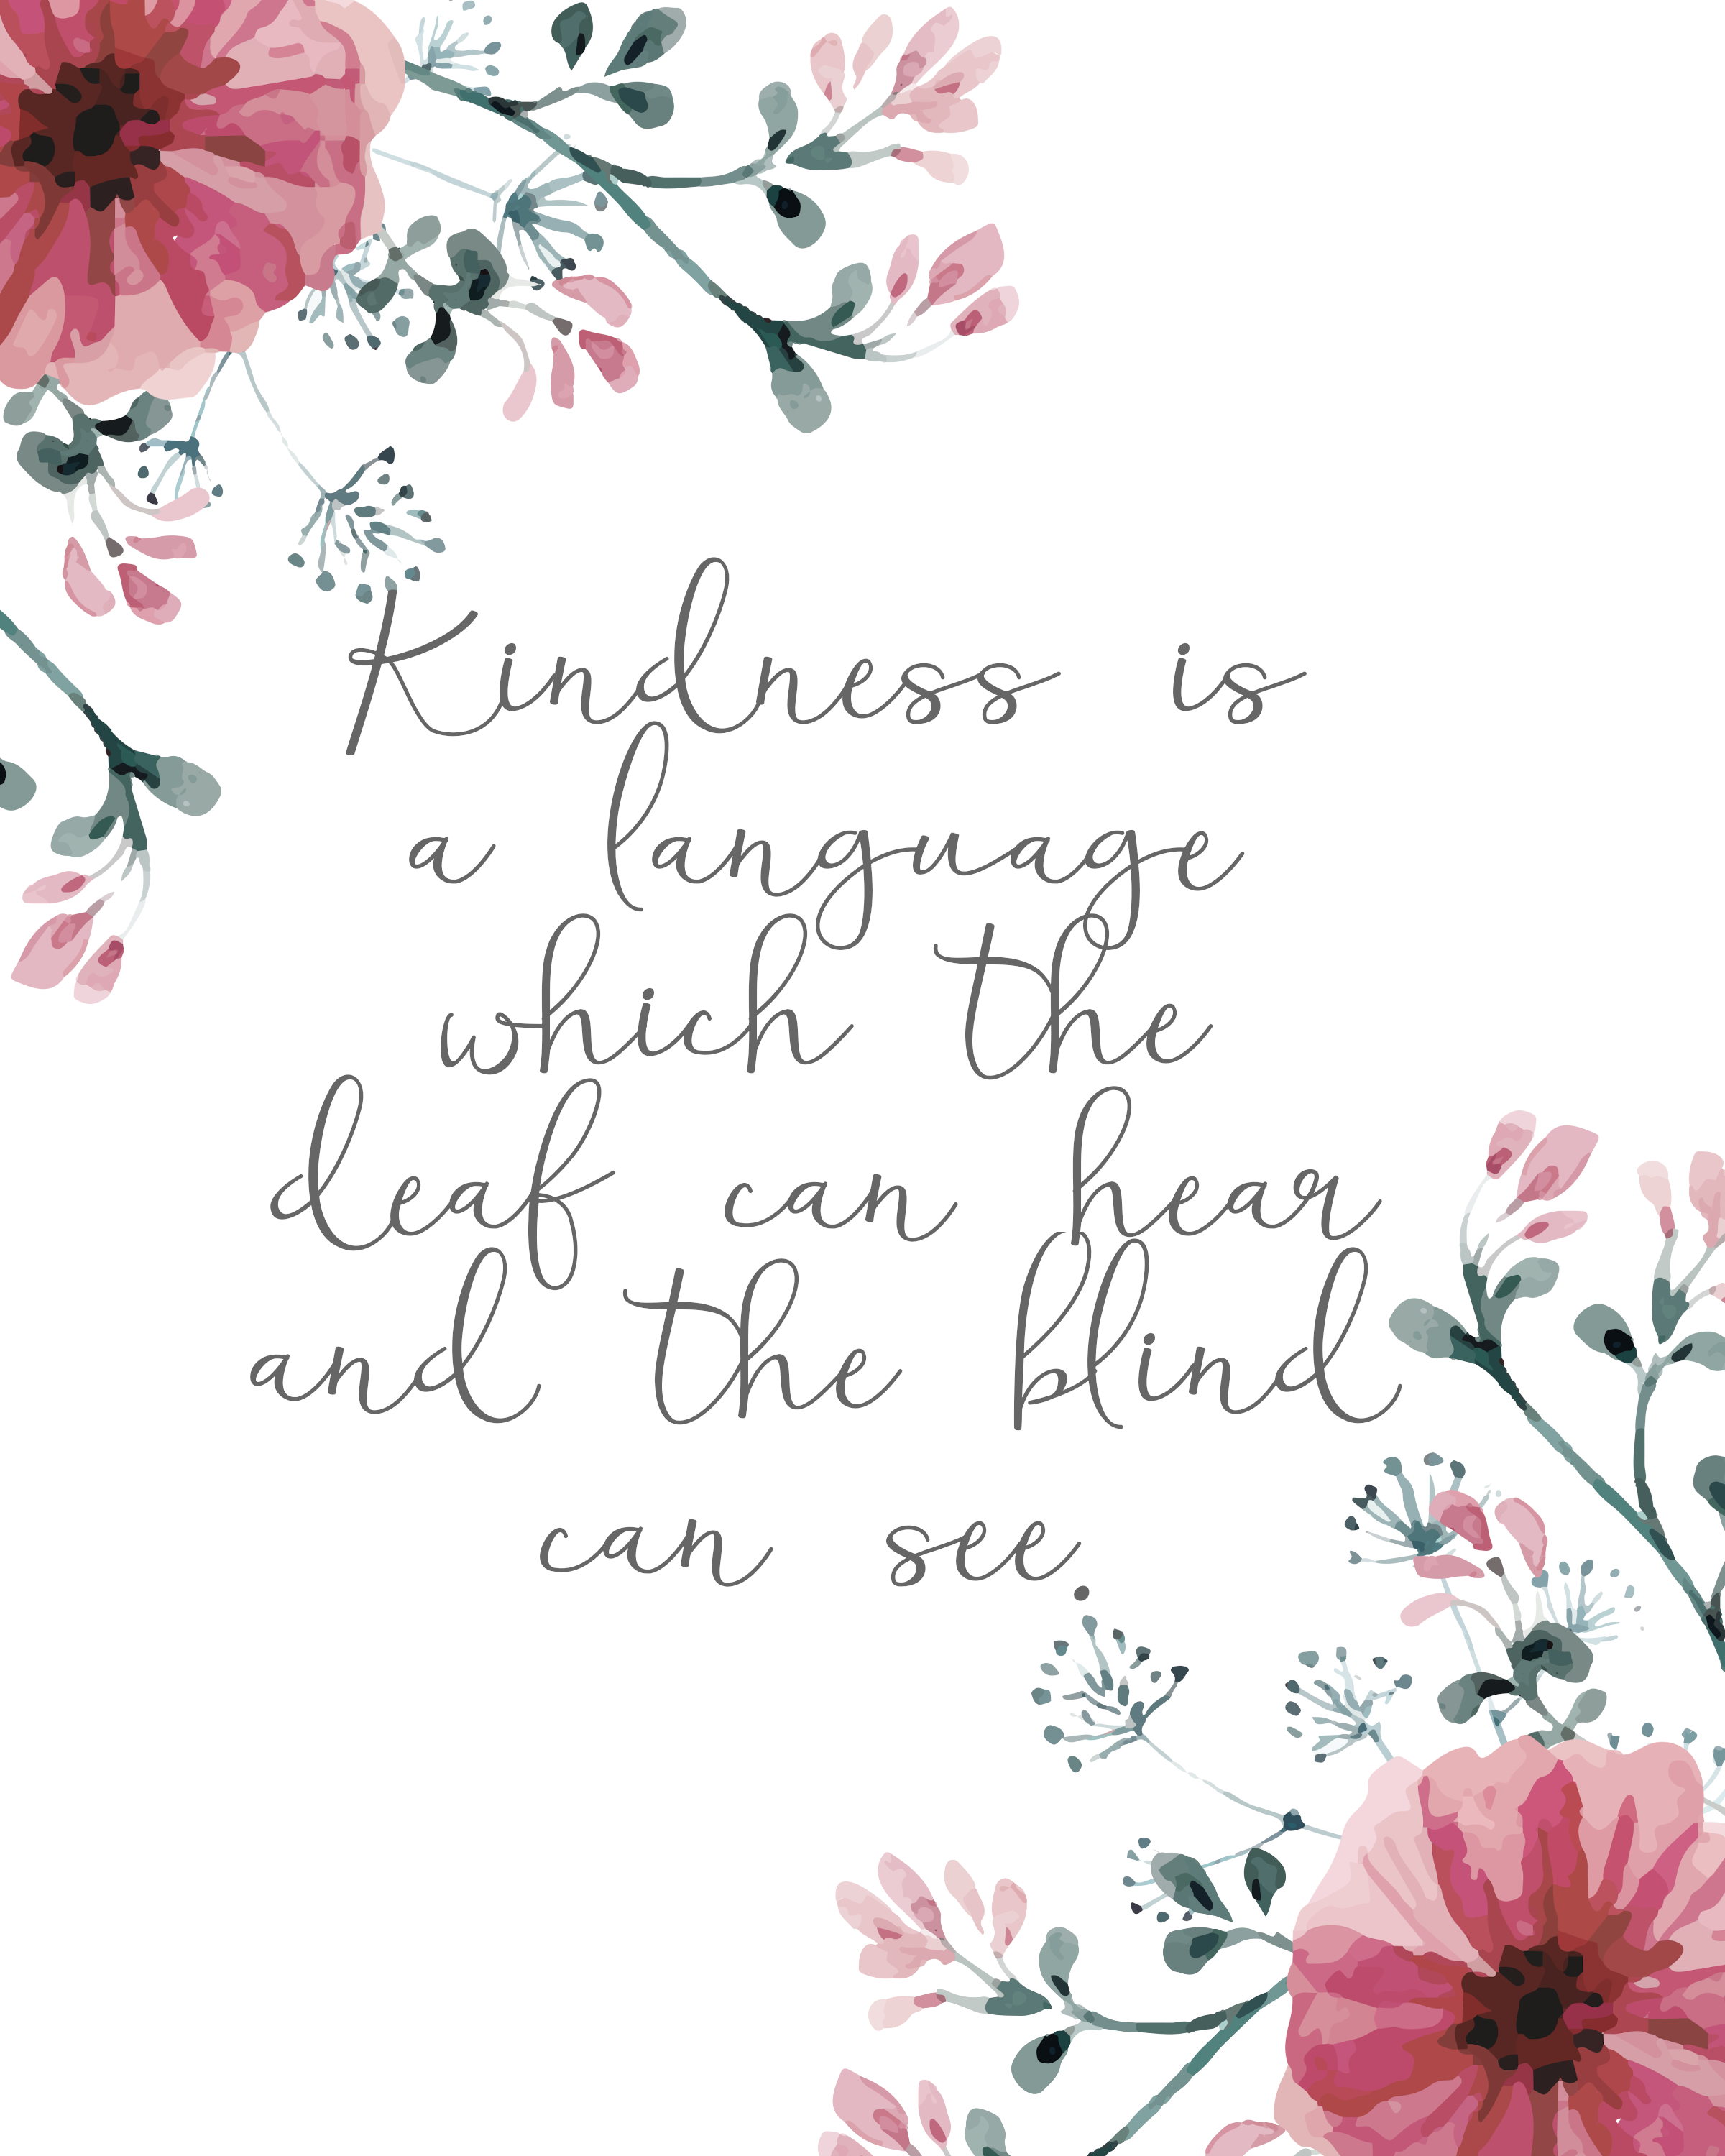 Kindness is
a language
which the
leaf can hear
and the blind
can see.